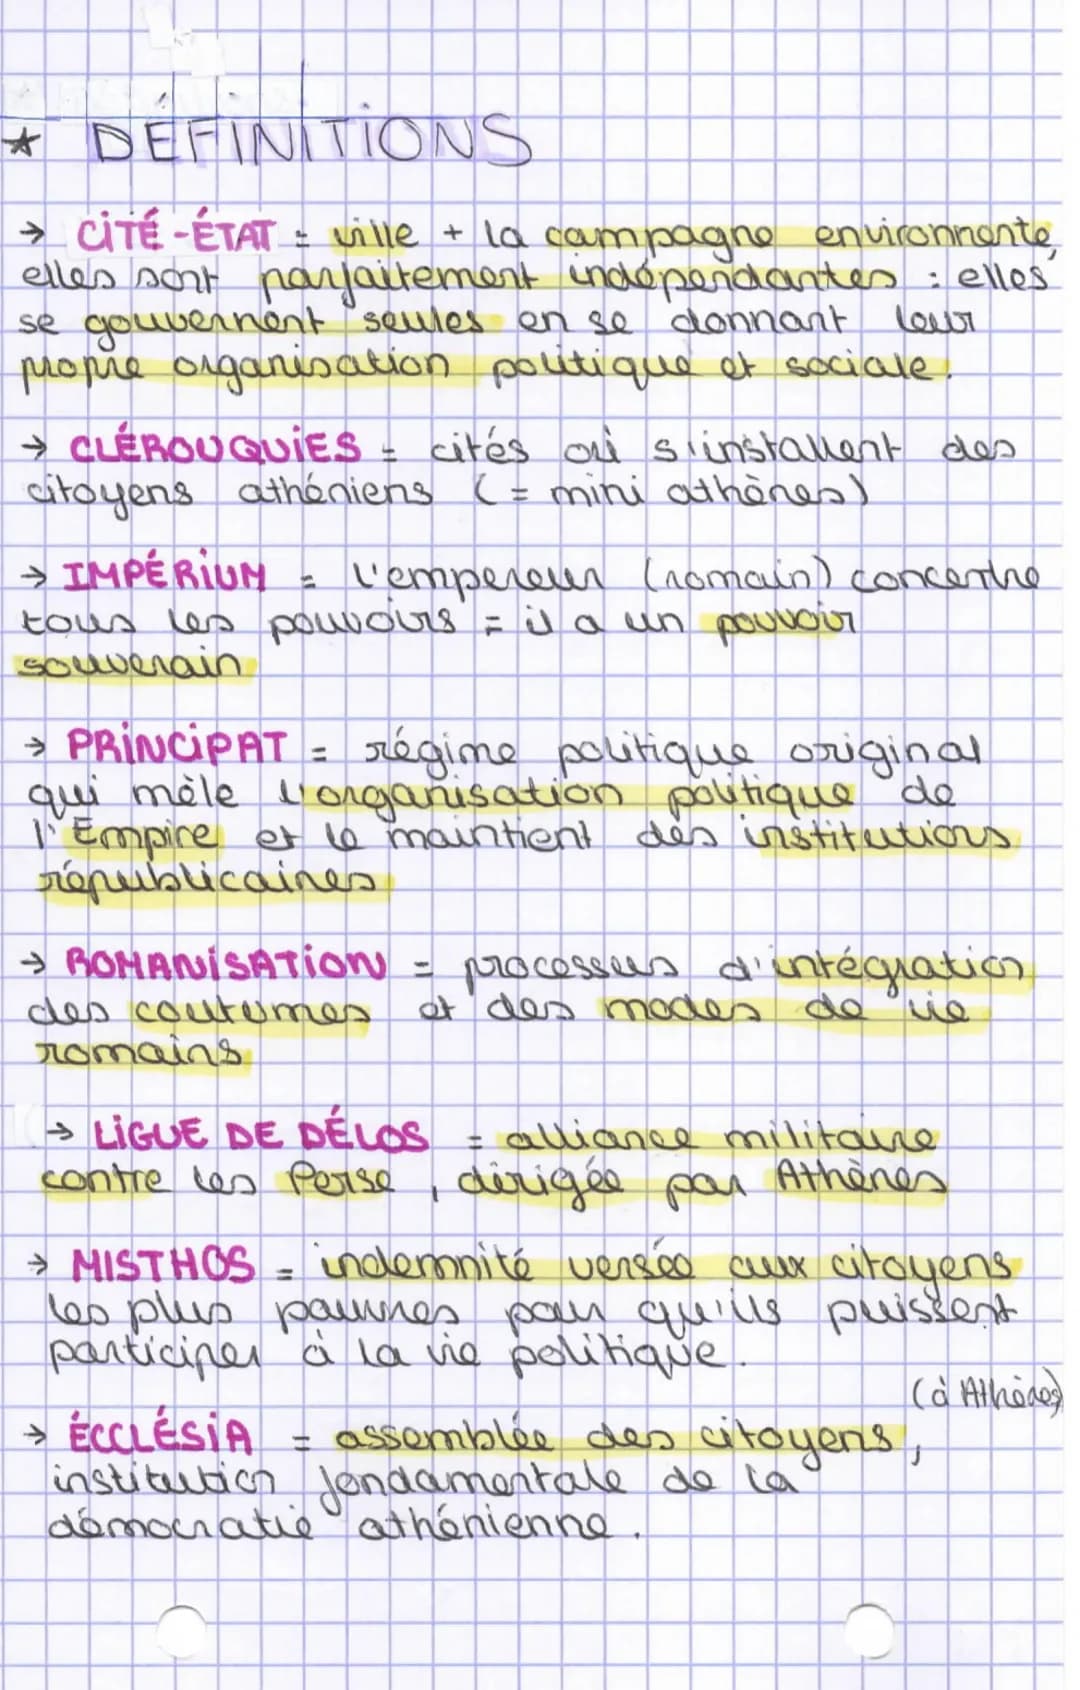 * DÉFINITIONS
→ CITÉ-ÉTAT = ville + la campagne environnante,
elles sont parfaitement indépendantes : elles
se gouvernent seules en se donnant leur
propre organisation politique et sociale.
→ CLÉROUQUIES = cités où s'installent des
citoyens athéniens (= mini athènes)
→ IMPÉRIUM = l'empereur (romain) concentre
tous les pouvoirs = il a un pouvoir
souverain
→ PRINCIPAT = régime politique original
qui mèle l'organisation politique de
l'Empire et le maintient des institutions
républicaines
→ ROMANISATION = processus d'intégration
des coutumes et des modes de vie
romains
→ LIGUE DE DÉLOS = alliance militaire
contre les Perse, dirigée par Athènes
→ MISTHOS = indemnité versée aux citoyens
les plus pauvres pour qu'ils puissent
participer à la vie politique.
(à Athènes)
→ ÉCCLÉSIA = assemblée des citoyens,
institution fondamentale de la
démocratie athénienne.